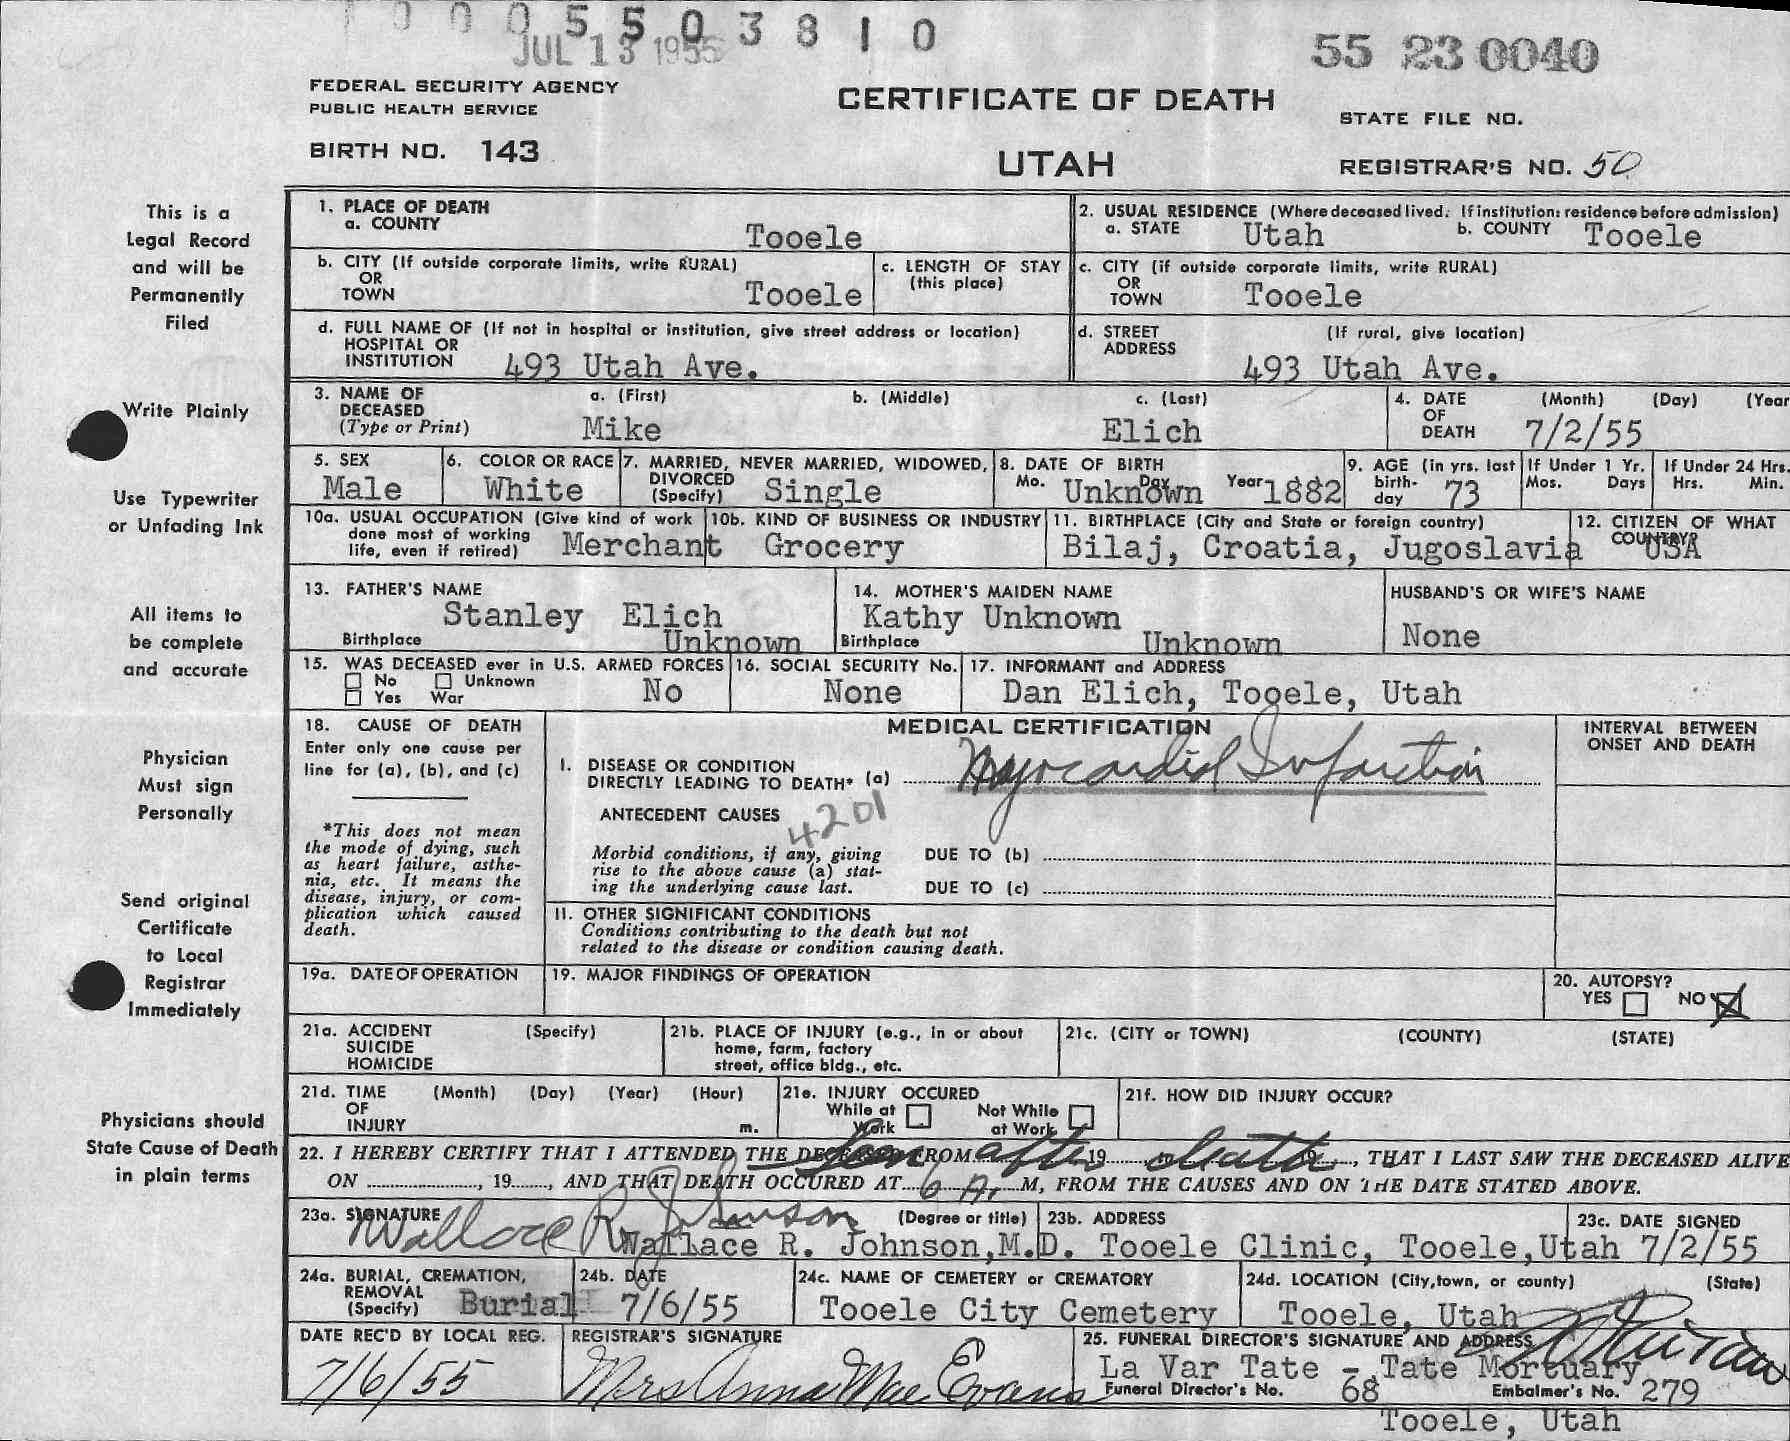 0 0 0 5 5 0 3 8 1 0
JUL 13 1955
55 23 0040
FEDERAL SECURITY AGENCY
PUBLIC HEALTH SERVICE
CERTIFICATE OF DEATH
STATE FILE NO.
BIRTH NO. 143
UTAH
REGISTRAR'S NO. 50
This is a
Legal Record
and will be
Permanently
Filed
Write Plainly
Use Typewriter
or Unfading Ink
All items to
be complete
and accurate
Physician
Must sign
Personally
Send original
Certificate
to Local
Registrar
Immediately
Physicians should
State Cause of Death
in plain terms
1. PLACE OF DEATH
a. COUNTY
Tooele
2. USUAL RESIDENCE (Where deceased lived. If institution: residence before admission)
a. STATE Utah b. COUNTY Tooele
b. CITY (If outside corporate limits, write RURAL)
OR
TOWN Tooele
c. LENGTH OF STAY
(this place)
c. CITY (if outside corporate limits, write RURAL)
OR
TOWN Tooele
d. FULL NAME OF (If not in hospital or institution, give street address or location)
HOSPITAL OR
INSTITUTION 493 Utah Ave.
d. STREET (If rural, give location)
ADDRESS
493 Utah Ave.
3. NAME OF a. (First) b. (Middle) c. (Last)
DECEASED
(Type or Print) Mike Elich
4. DATE (Month) (Day) (Year
OF
DEATH 7/2/55
5. SEX
Male
6. COLOR OR RACE
White
7. MARRIED, NEVER MARRIED, WIDOWED,
DIVORCED
(Specify) Single
8. DATE OF BIRTH
Mo. Unknown Day Year 1882
9. AGE (in yrs. last
birth-
day 73
If Under 1 Yr.
Mos. Days
If Under 24 Hrs.
Hrs. Min.
10a. USUAL OCCUPATION (Give kind of work
done most of working
life, even if retired) Merchant
10b. KIND OF BUSINESS OR INDUSTRY
Grocery
11. BIRTHPLACE (City and State or foreign country)
Bilaj, Croatia, Jugoslavia
12. CITIZEN OF WHAT
COUNTRY? USA
13. FATHER'S NAME
Stanley Elich
Birthplace Unknown
14. MOTHER'S MAIDEN NAME
Kathy Unknown
Birthplace Unknown
HUSBAND'S OR WIFE'S NAME
None
15. WAS DECEASED ever in U.S. ARMED FORCES
No Unknown
Yes War No
16. SOCIAL SECURITY No.
None
17. INFORMANT and ADDRESS
Dan Elich, Tooele, Utah
18. CAUSE OF DEATH
Enter only one cause per
line for (a), (b), and (c)
*This does not mean
the mode of dying, such
as heart failure, asthe-
nia, etc. It means the
disease, injury, or com-
plication which caused
death.
MEDICAL CERTIFICATION
I. DISEASE OR CONDITION
DIRECTLY LEADING TO DEATH* (a) Myocardial Infarction
ANTECEDENT CAUSES
4201
Morbid conditions, if any, giving
rise to the above cause (a) stat-
ing the underlying cause last.
DUE TO (b)
DUE TO (c)
II. OTHER SIGNIFICANT CONDITIONS
Conditions contributing to the death but not
related to the disease or condition causing death.
INTERVAL BETWEEN
ONSET AND DEATH
19a. DATE OF OPERATION
19. MAJOR FINDINGS OF OPERATION
20. AUTOPSY?
YES NO X
21a. ACCIDENT (Specify)
SUICIDE
HOMICIDE
21b. PLACE OF INJURY (e.g., in or about
home, farm, factory
street, office bldg., etc.
21c. (CITY or TOWN) (COUNTY) (STATE)
21d. TIME (Month) (Day) (Year) (Hour)
OF
INJURY m.
21e. INJURY OCCURED
While at Not While
Work at Work
21f. HOW DID INJURY OCCUR?
22. I HEREBY CERTIFY THAT I ATTENDED THE DECEASED FROM after 19 to death 19, THAT I LAST SAW THE DECEASED ALIVE
ON , 19 , AND THAT DEATH OCCURED AT 6 A. M, FROM THE CAUSES AND ON THE DATE STATED ABOVE.
23a. SIGNATURE (Degree or title)
Wallace R. Johnson
Wallace R. Johnson, M.D.
23b. ADDRESS
Tooele Clinic, Tooele, Utah
23c. DATE SIGNED
7/2/55
24a. BURIAL, CREMATION,
REMOVAL
(Specify) Burial
24b. DATE
7/6/55
24c. NAME OF CEMETERY or CREMATORY
Tooele City Cemetery
24d. LOCATION (City, town, or county) (State)
Tooele, Utah
DATE REC'D BY LOCAL REG.
7/6/55
REGISTRAR'S SIGNATURE
Mrs Anna Mae Evans
25. FUNERAL DIRECTOR'S SIGNATURE AND ADDRESS
La Var Tate - Tate Mortuary
Funeral Director's No. 68 Embalmer's No. 279
Tooele, Utah